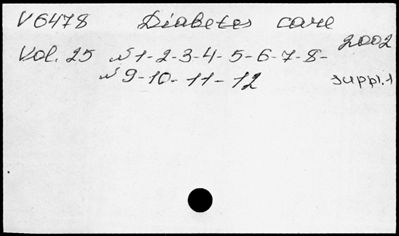 V6478 Diabetes care
Vol. 25 N1-2-3-4-5-6-7-8- 2002
N9-10-11-12 suppl.1